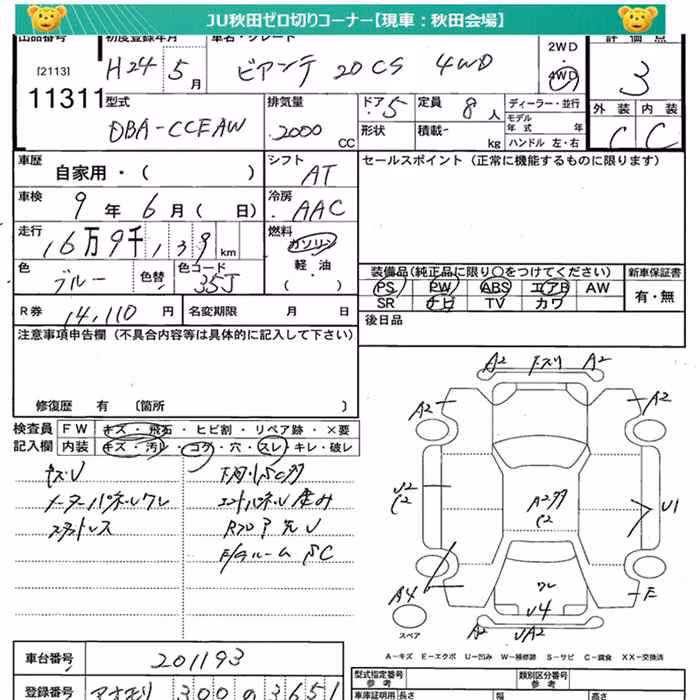 JU秋田ゼロ切りコーナー【現車：秋田会場】
出品番号 初度登録年月 車名・グレード 2WD 評価点
[2113] H24 5月 ビアンテ 20CS 4WD 4WD 3
11311
型式 排気量 ドア 5 定員 8人 ディーラー・並行 外装 内装
DBA-CCEAW 2000 CC 形状 積載 kg モデル年式 年 C C
ハンドル 左・右
車歴 自家用・( ) シフト AT セールスポイント（正常に機能するものに限ります）
車検 9年 6月( 日) 冷房 AAC
走行 16万9千,139 km 燃料 ガソリン
軽油
( )
色 ブルー 色替 色コード 35J
装備品（純正品に限り○をつけてください） 新車保証書
PS PW ABS エアB AW 有・無
SR ナビ TV カワ
R券 14,110円 名変期限 月 日 後日品
注意事項申告欄（不具合内容等は具体的に記入して下さい）
修復歴 有 〔箇所 〕
検査員 FW キズ・飛石・ヒビ割・リペア跡・×要
記入欄 内装 キズ・汚レ・コゲ・穴・スレ・キレ・破レ
メーターパネルワレ
スタットレス
A2 下スリ A2
A2 A2
U2
C2
A2
C2
U1
ワレ
A4 U4 E
A2 UA2
スペア
A－キズ E－エクボ U－凹み W－補修跡 S－サビ C－腐食 XX－交換済
車台番号 201193
登録番号 アオモリ 300 の 3651
型式指定番号 参考 類別区分番号 参考
車庫証明用 長さ 幅 高さ